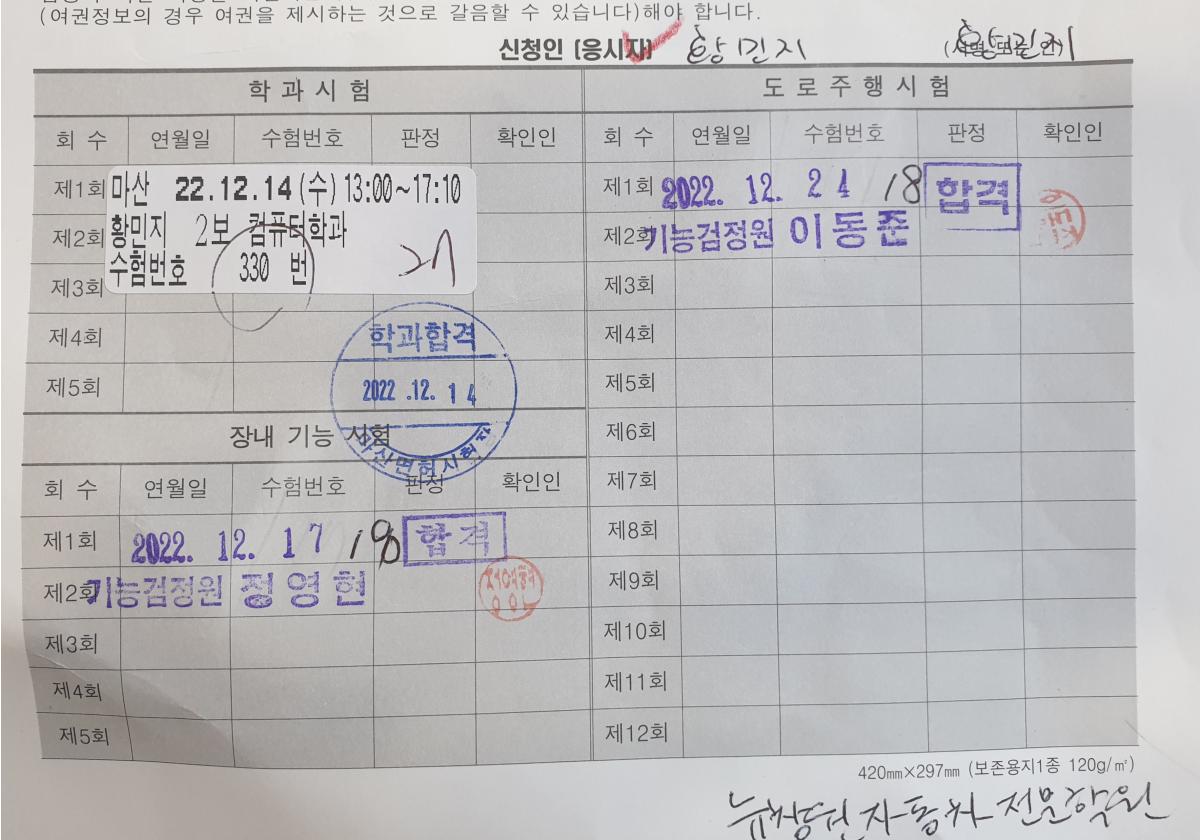 (여권정보의 경우 여권을 제시하는 것으로 갈음할 수 있습니다)해야 합니다.
신청인 [응시자] 황민지 (서명 또는 인) 황민지
학 과 시 험
회 수 연월일 수험번호 판정 확인인
제1회 마산 22.12.14(수) 13:00~17:10
제2회 황민지 2보 컴퓨터학과
수험번호 330 번
제3회
제4회
제5회
학과합격
2022.12.14
마산면허시험장
장내 기능 시험
회 수 연월일 수험번호 판정 확인인
제1회 2022. 12. 17 18 합격
제2회 기능검정원 정영현
제3회
제4회
제5회
도 로 주 행 시 험
회 수 연월일 수험번호 판정 확인인
제1회 2022. 12. 24 18 합격
제2회 기능검정원 이동준
제3회
제4회
제5회
제6회
제7회
제8회
제9회
제10회
제11회
제12회
420㎜×297㎜ (보존용지1종 120g/㎡)
뉴창원자동차전문학원